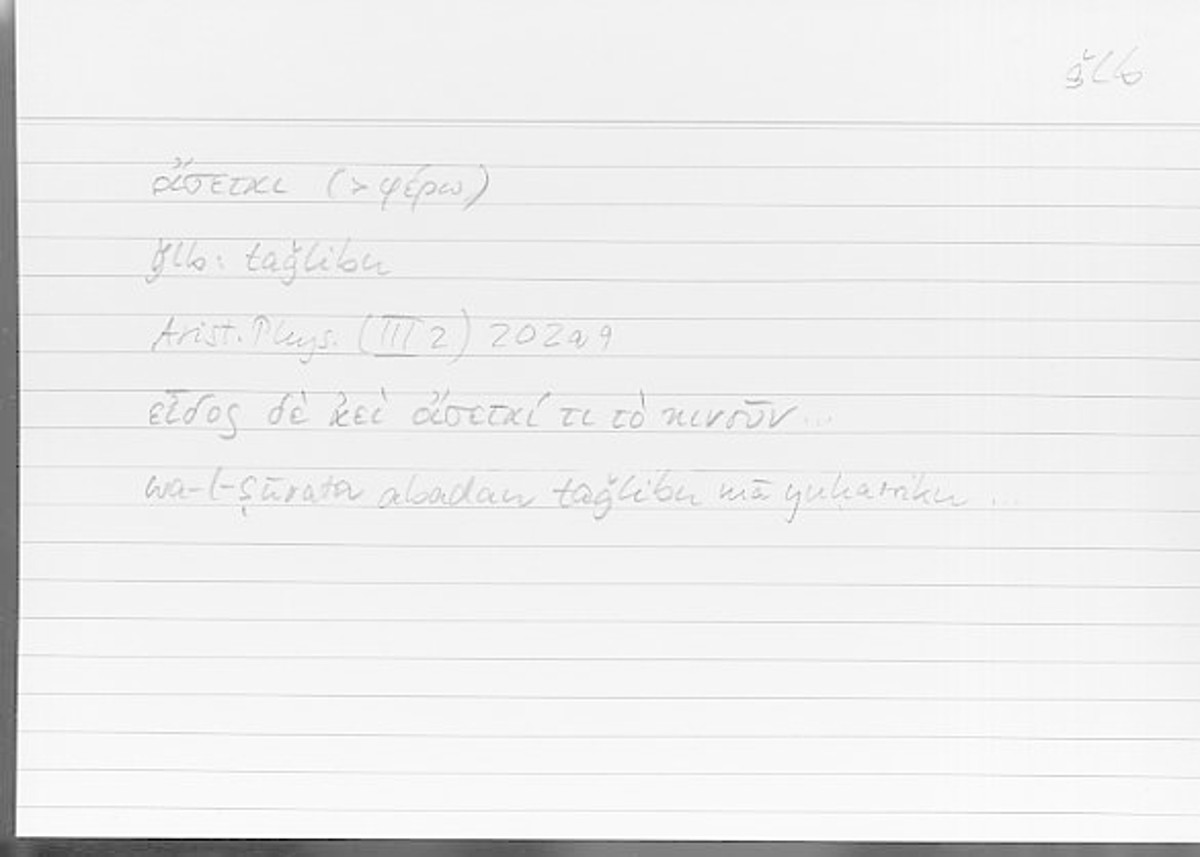 ǧlb
οἴσεται (> φέρω)
ǧlb: taǧlibu
Arist. Phys. (III 2) 202a9
εἶδος δὲ ἀεὶ οἴσεταί τι τὸ κινοῦν ...
wa-l-ṣūrata abadan taǧlibu mā yuḥarriku ...